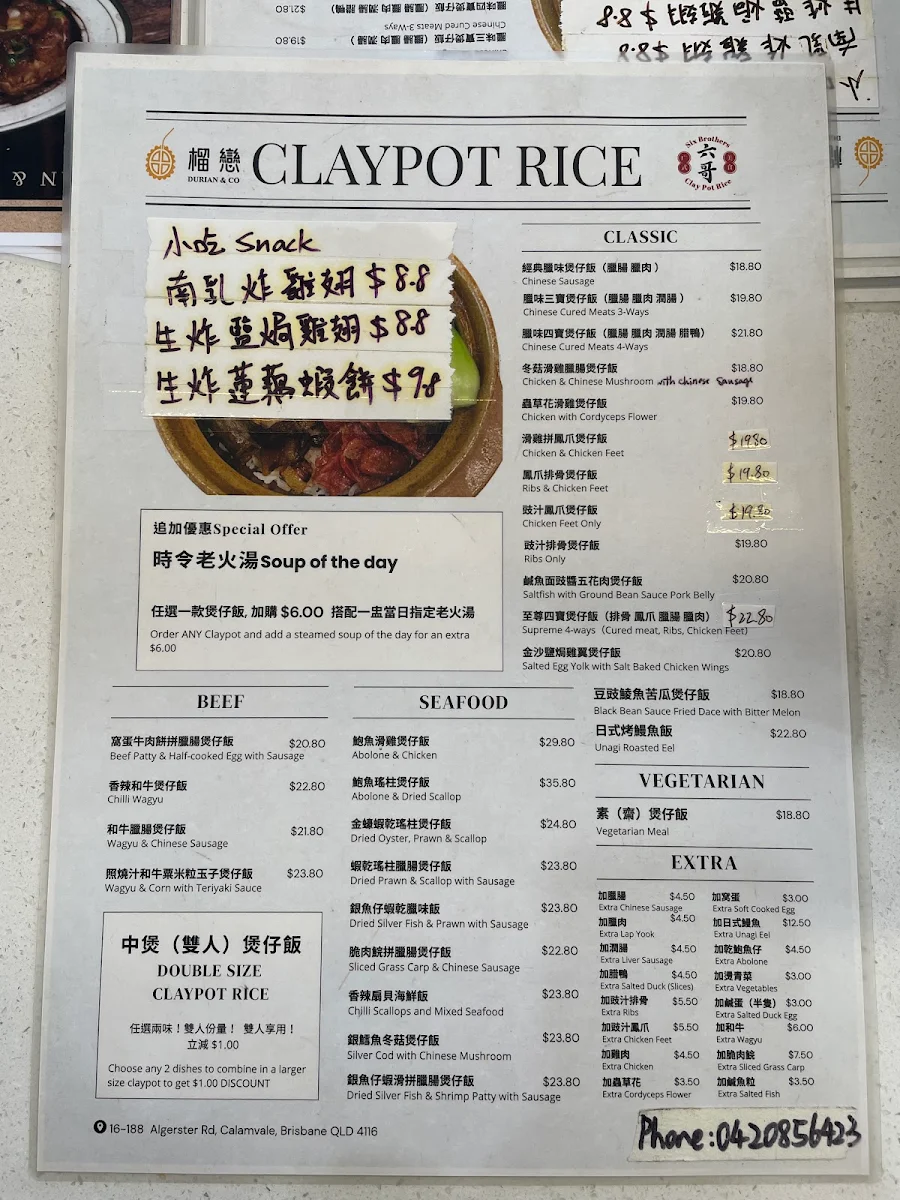 臘味四寶煲仔飯（臘腸 臘肉 潤腸 腊鴨）
$21.80
Chinese Cured Meats 3-Ways
臘味三寶煲仔飯（臘腸 臘肉 潤腸）
$19.80
生炸鹽焗雞翅 $8.8
南乳炸雞翅 $8.8
N &
榴戀
DURIAN & CO
CLAYPOT RICE
Six Brothers
六哥
Clay Pot Rice
小吃 Snack
南乳炸雞翅 $8.8
生炸盬焗雞翅 $8.8
生炸蓮藕蝦餅 $9.8
追加優惠Special Offer
時令老火湯Soup of the day
任選一款煲仔飯, 加購 $6.00 搭配一盅當日指定老火湯
Order ANY Claypot and add a steamed soup of the day for an extra
$6.00
CLASSIC
經典臘味煲仔飯（臘腸 臘肉 ） $18.80
Chinese Sausage
臘味三寶煲仔飯（臘腸 臘肉 潤腸 ） $19.80
Chinese Cured Meats 3-Ways
臘味四寶煲仔飯（臘腸 臘肉 潤腸 腊鴨） $21.80
Chinese Cured Meats 4-Ways
冬菇滑雞臘腸煲仔飯 $18.80
Chicken & Chinese Mushroom with chinese Sausage
蟲草花滑雞煲仔飯 $19.80
Chicken with Cordyceps Flower
滑雞拼鳳爪煲仔飯 $19.80
Chicken & Chicken Feet
鳳爪排骨煲仔飯 $19.80
Ribs & Chicken Feet
豉汁鳳爪煲仔飯 $19.80
Chicken Feet Only
豉汁排骨煲仔飯 $19.80
Ribs Only
鹹魚面豉醬五花肉煲仔飯 $20.80
Saltfish with Ground Bean Sauce Pork Belly
至尊四寶煲仔飯（排骨 鳳爪 臘腸 臘肉） $22.80
Supreme 4-ways（Cured meat, Ribs, Chicken Feet）
金沙鹽焗雞翼煲仔飯 $20.80
Salted Egg Yolk with Salt Baked Chicken Wings
豆豉鯪魚苦瓜煲仔飯 $18.80
Black Bean Sauce Fried Dace with Bitter Melon
日式烤鰻魚飯 $22.80
Unagi Roasted Eel
BEEF
窩蛋牛肉餅拼臘腸煲仔飯 $20.80
Beef Patty & Half-cooked Egg with Sausage
香辣和牛煲仔飯 $22.80
Chilli Wagyu
和牛臘腸煲仔飯 $21.80
Wagyu & Chinese Sausage
照燒汁和牛粟米粒玉子煲仔飯 $23.80
Wagyu & Corn with Teriyaki Sauce
中煲（雙人）煲仔飯
DOUBLE SIZE
CLAYPOT RICE
任選兩味！雙人份量！ 雙人享用！
立減 $1.00
Choose any 2 dishes to combine in a larger
size claypot to get $1.00 DISCOUNT
SEAFOOD
鮑魚滑雞煲仔飯 $29.80
Abolone & Chicken
鮑魚瑤柱煲仔飯 $35.80
Abolone & Dried Scallop
金蠔蝦乾瑤柱煲仔飯 $24.80
Dried Oyster, Prawn & Scallop
蝦乾瑤柱臘腸煲仔飯 $23.80
Dried Prawn & Scallop with Sausage
銀魚仔蝦乾臘味飯 $23.80
Dried Silver Fish & Prawn with Sausage
脆肉鯇拼臘腸煲仔飯 $22.80
Sliced Grass Carp & Chinese Sausage
香辣扇貝海鮮飯 $23.80
Chilli Scallops and Mixed Seafood
銀鱈魚冬菇煲仔飯 $23.80
Silver Cod with Chinese Mushroom
銀魚仔蝦滑拼臘腸煲仔飯 $23.80
Dried Silver Fish & Shrimp Patty with Sausage
VEGETARIAN
素（齋）煲仔飯 $18.80
Vegetarian Meal
EXTRA
加臘腸 $4.50
Extra Chinese Sausage
加臘肉 $4.50
Extra Lap Yook
加潤腸 $4.50
Extra Liver Sausage
加腊鴨 $4.50
Extra Salted Duck (Slices)
加豉汁排骨 $5.50
Extra Ribs
加豉汁鳳爪 $5.50
Extra Chicken Feet
加雞肉 $4.50
Extra Chicken
加蟲草花 $3.50
Extra Cordyceps Flower
加窩蛋 $3.00
Extra Soft Cooked Egg
加日式鰻魚 $12.50
Extra Unagi Eel
加乾鮑魚仔 $4.50
Extra Abolone
加燙青菜 $3.00
Extra Vegetables
加鹹蛋（半隻） $3.00
Extra Salted Duck Egg
加和牛 $6.00
Extra Wagyu
加脆肉鯇 $7.50
Extra Sliced Grass Carp
加鹹魚粒 $3.50
Extra Salted Fish
16-188 Algerster Rd, Calamvale, Brisbane QLD 4116
Phone:0420856423